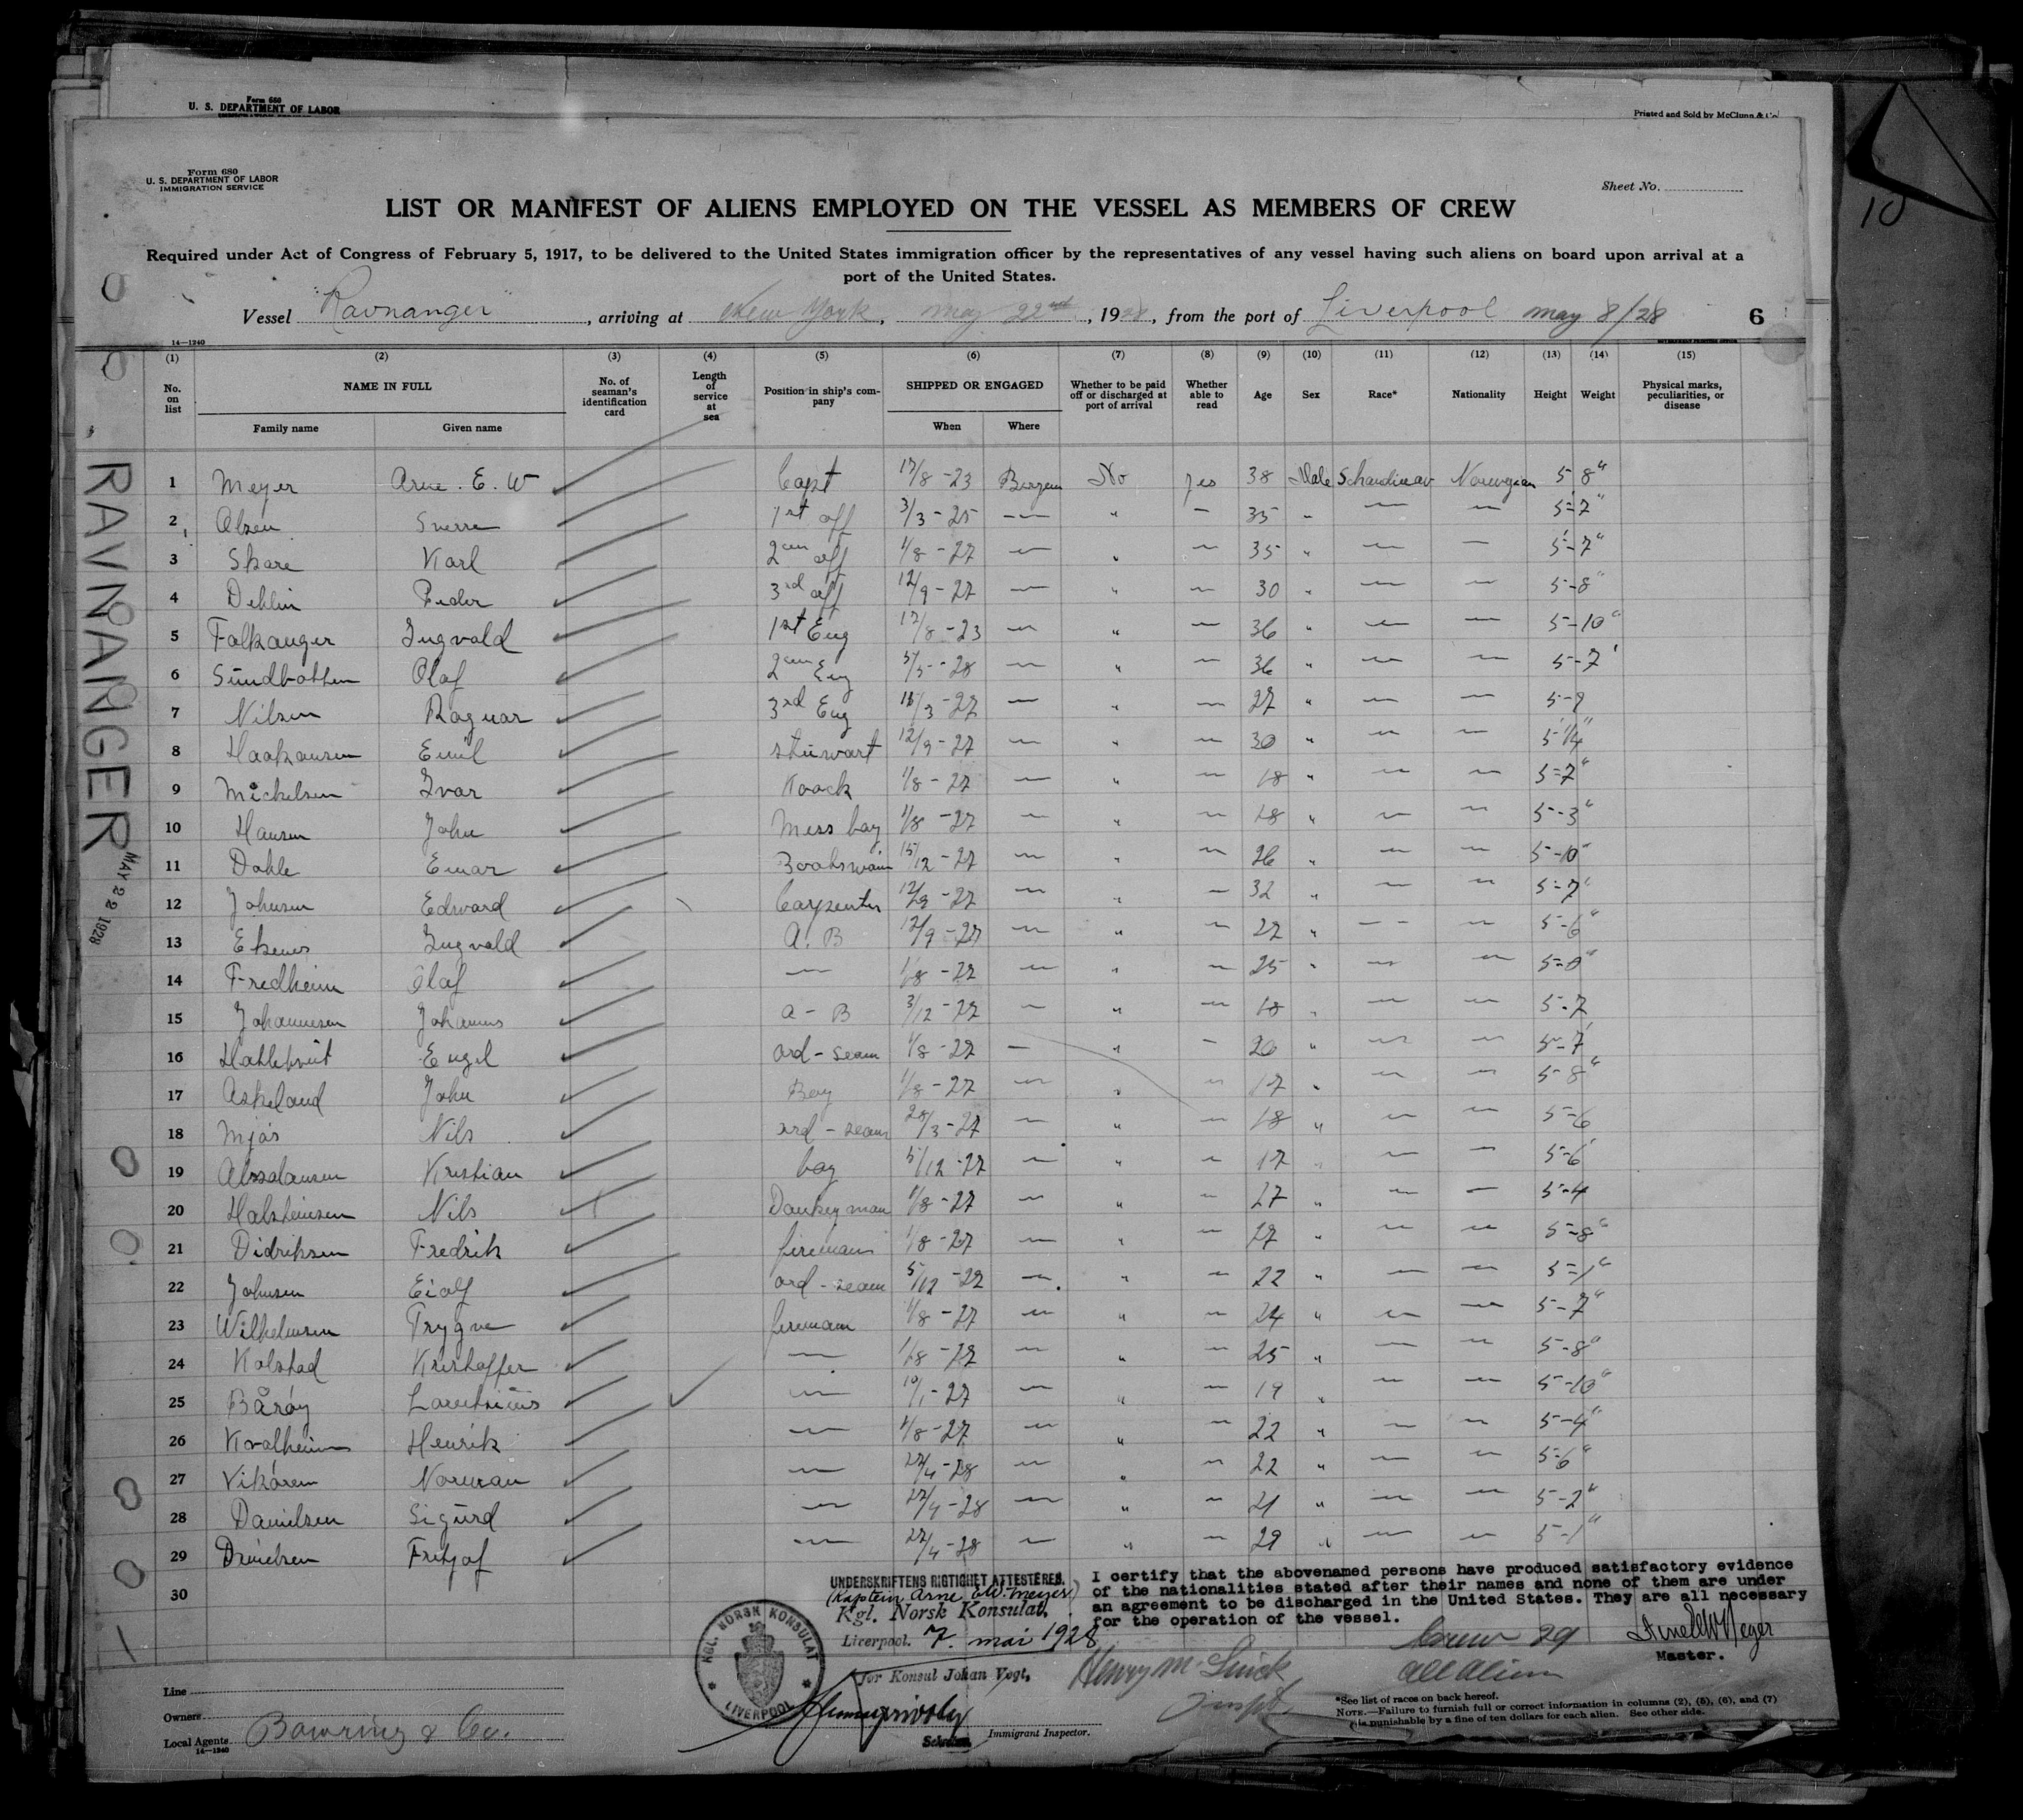 Form 680
U. S. DEPARTMENT OF LABOR
Printed and Sold by McClunn & Co
Form 680
U. S. DEPARTMENT OF LABOR
IMMIGRATION SERVICE
Sheet No.
10
LIST OR MANIFEST OF ALIENS EMPLOYED ON THE VESSEL AS MEMBERS OF CREW
Required under Act of Congress of February 5, 1917, to be delivered to the United States immigration officer by the representatives of any vessel having such aliens on board upon arrival at a
port of the United States.
Vessel "Ravnanger", arriving at New York, May 22nd, 1928, from the port of Liverpool may 8/28 6
14—1240
(1) (2) (3) (4) (5) (6) (7) (8) (9) (10) (11) (12) (13) (14) (15)
No. on list NAME IN FULL No. of seaman's identification card Length of service at sea Position in ship's company SHIPPED OR ENGAGED Whether to be paid off or discharged at port of arrival Whether able to read Age Sex Race* Nationality Height Weight Physical marks, peculiarities, or disease
Family name Given name When Where
1 Meyer Arne. E. W Capt 17/8-23 Bergen No yes 38 Male Schandinav Norwegian 5 8"
2 Olsen Sverre 1st off 3/3-25 — " — 35 " — — 5-7"
3 Skare Karl 2den off 1/8-27 — " — 35 " — — 5-7"
4 Dehlin Peder 3rd off 12/9-27 — " — 30 " — — 5-8"
5 Falkanger Ingvald 1st Eng 17/8-23 — " — 36 " — — 5-10"
6 Sundbotten Olaf 2den Eng 5/5-28 — " — 36 " — — 5-7'
7 Nilsen Ragnar 3rd Eng 16/3-27 — " — 27 " — —
8 Haakonsen Emil stuwart 12/9-27 — " — 30 " — —
9 Mickelsen Ivar Koock 1/8-27 — " — 18 " — — 5-7"
10 Hansen John Mess boy 1/8-27 — " — 18 " — — 5-3"
11 Dahle Einar Bootswain 15/12-27 — " — 26 " — — 5-10"
12 Johnsen Edward Carpenter 12/9-27 — 32 " — — 5-7"
13 Ekenes Ingvald A. B 12/9-27 — " — 27 " — — 5-6"
14 Fredheim Olaf — 1/8-27 — " — 25 " — —
15 Johannesen Johannes a-B 3/12-27 — " — 18 " — — 5-7
16 Engel ord-seam 1/8-27 — " — 20 " — — 5-7'
17 Askeland John Boy 1/8-27 — " — 17 " — — 5-8"
18 Mjøs Nils ord-seam 28/3-27 — " — 18 " — — 5-6
19 Absalonsen Kristian boy 5/12-27 — " — 17 " — — 5-6'
20 Halsteinsen Nils Donkeyman 1/8-27 — " — 27 " — — 5-4
21 Didriksen Fredrik fireman 1/8-27 — " — 27 " — — 5-8"
22 Johnsen Eiolf ord-seam 5/12-27 — " — 22 " — — 5-1"
23 Wilhelmsen Trygve fireman 1/8-27 — " — 24 " — — 5-7"
24 Kolstad Kristoffer — 1/8-27 — " — 25 " — — 5-8"
25 Bårøy Laurentsius — 10/1-27 — " — 19 " — — 5-10"
26 Kvalheim Henrik — 1/8-27 — " — 22 " — — 5-4"
27 Vikøren Norman — 27/4-28 — " — 22 " — — 5-6"
28 Danielsen Sigurd — 27/4-28 — " — 21 " — — 5-2"
29 Danielsen Fritjof — 27/4-28 — " — 29 " — — 5-1"
30
RAVNANGER
MAY 22 1928
UNDERSKRIFTENS RIGTIGHET ATTESTERES.
(Kaptein Arne E.W. Meyer)
Kgl. Norsk Konsulat,
Liverpool. 7. mai 1928
for Konsul Johan Vogt,
KGL. NORSK KONSULAT
LIVERPOOL
I certify that the abovenamed persons have produced satisfactory evidence
of the nationalities stated after their names and none of them are under
an agreement to be discharged in the United States. They are all necessary
for the operation of the vessel.
Crew 29
All Alien
Arne E W Meyer
Master.
Henry M.
Inspt.
Immigrant Inspector.
*See list of races on back hereof.
NOTE.—Failure to furnish full or correct information in columns (2), (5), (6), and (7)
is punishable by a fine of ten dollars for each alien. See other side.
Line
Owners
Local Agents Bowring & Co.
14—1240